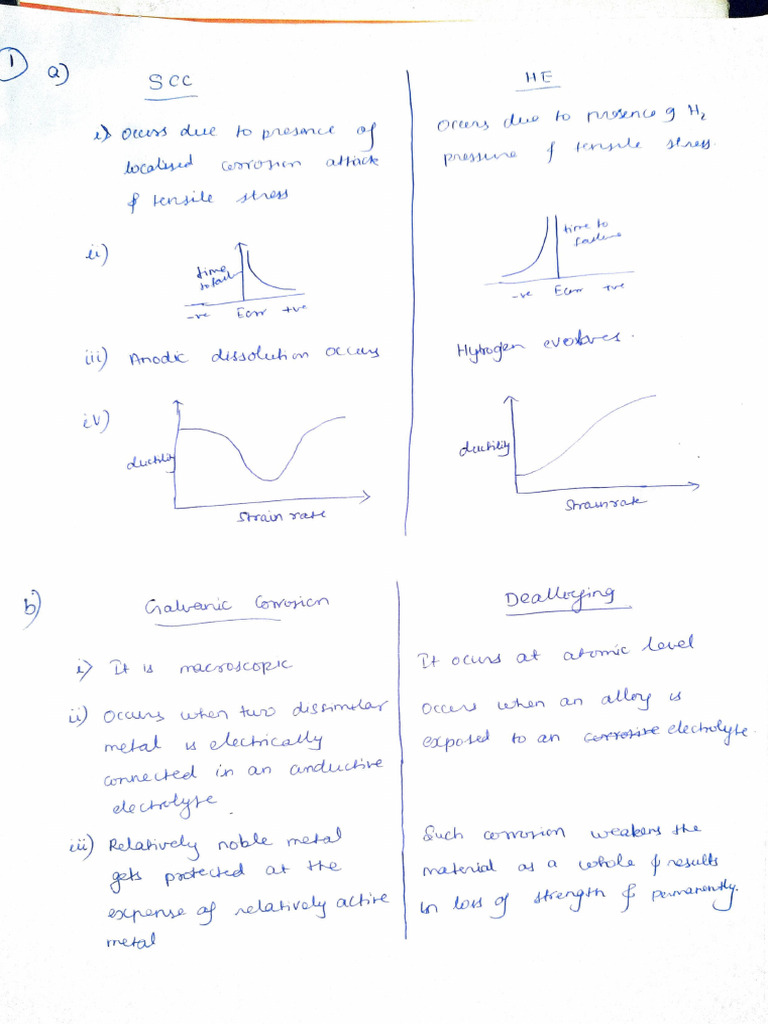 1
a)
SCC
i) Occurs due to presence of
localised corrosion attack
& tensile stress
HE
Occurs due to presence of H2
pressure & tensile stress.
ii)
time
to fail
-ve Ecorr +ve
time to
failure
-ve Ecorr +ve
iii) Anodic dissolution occurs
Hydrogen evolves.
iv)
ductility
Strain rate
ductility
Strain rate
b)
Galvanic Corrosion
i) It is macroscopic
ii) Occurs when two dissimilar
metal is electrically
connected in an conductive
electrolyte.
iii) Relatively noble metal
gets protected at the
expense of relatively active
metal
Dealloying
It occurs at atomic level
Occurs when an alloy is
exposed to an corrosive electrolyte.
Such corrosion weakens the
material as a whole & results
in loss of strength & permanently.